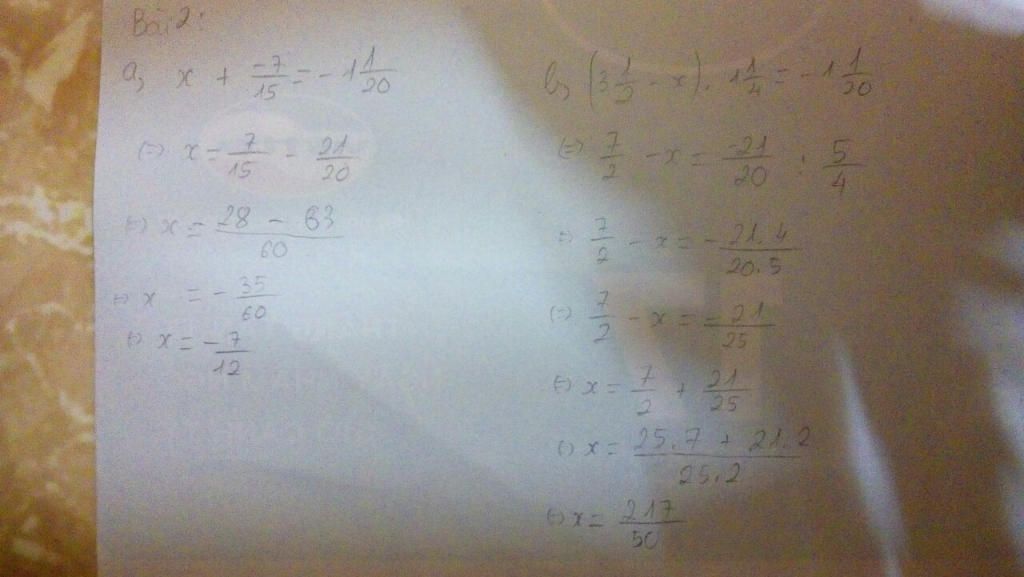 Bài 2:
a, x + \frac{-7}{15} = -1\frac{1}{20}
(=) x = \frac{7}{15} - \frac{21}{20}
(=) x = \frac{28 - 63}{60}
(=) x = -\frac{35}{60}
(=) x = -\frac{7}{12}
b, (3\frac{1}{2} - x) . 1\frac{1}{4} = -1\frac{1}{20}
(=) \frac{7}{2} - x = \frac{-21}{20} : \frac{5}{4}
(=) \frac{7}{2} - x = -\frac{21.4}{20.5}
(=) \frac{7}{2} - x = -\frac{21}{25}
(=) x = \frac{7}{2} + \frac{21}{25}
(=) x = \frac{25.7 + 21.2}{25.2}
(=) x = \frac{217}{50}